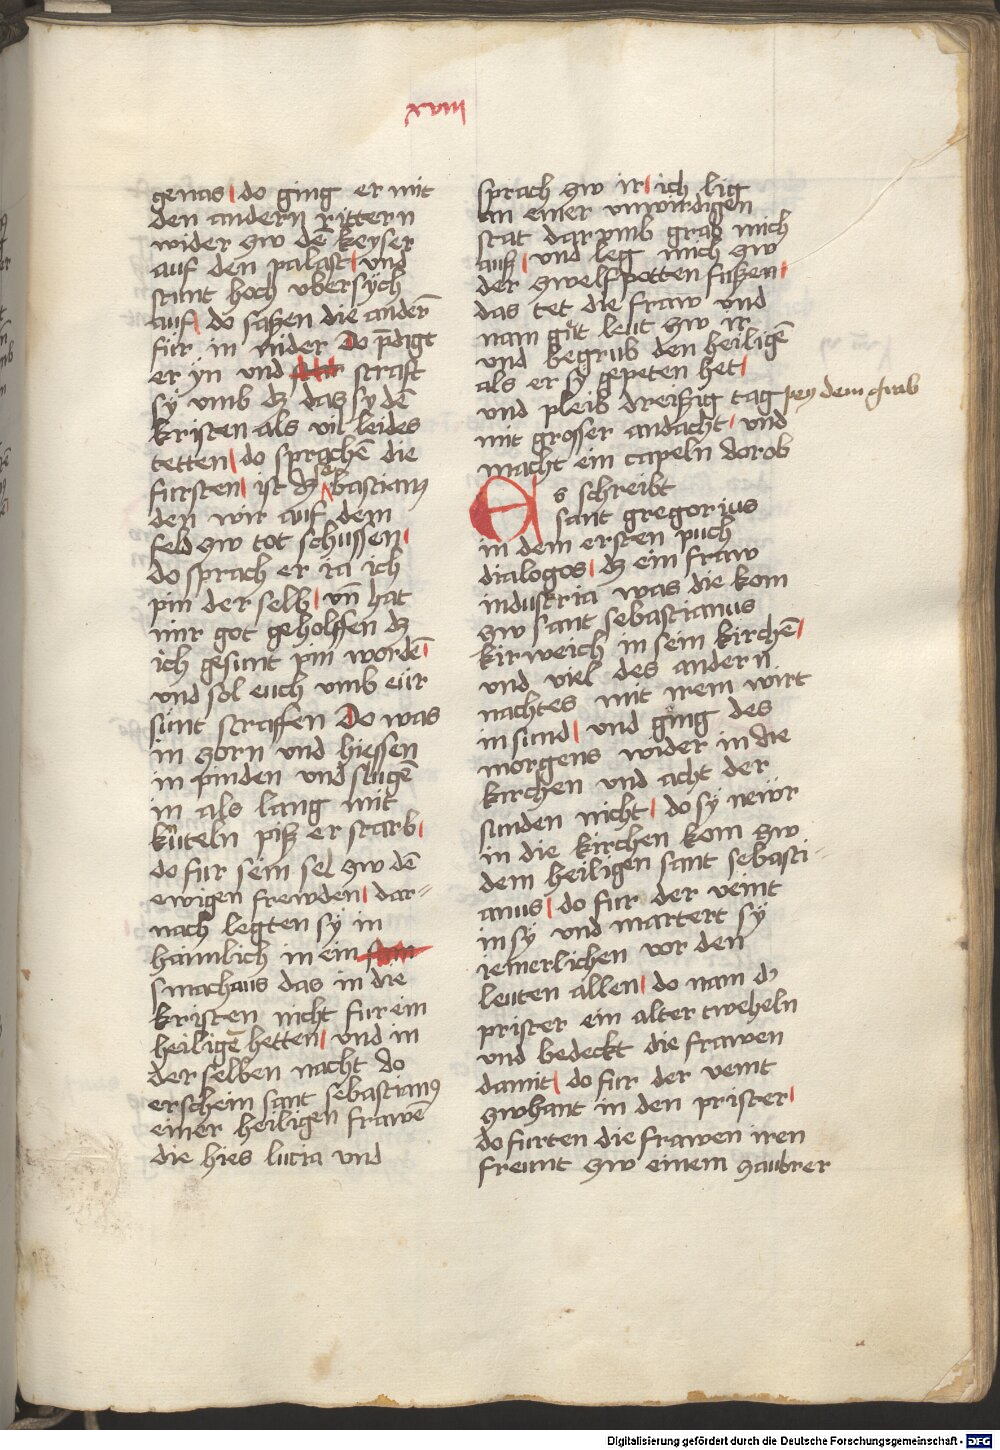 xviii
genas do ging er mit
den andern rittern
wider zw dē keyser
auf den palast und
stunt hoch ubersych
auf do saßen die anderē
für in nider Do p̄digt
er yn und straft
sÿ umb dz das sy dē
kristen als vil leides
tetten do sprachē die
fursten ist dz sebastianus
den wir auf dem
feld zw tot schussen
do sprach er ia ich
pin der selb vn̄ hat
mir got geholffen dz
ich gesunt pin wordē
und sol euch umb eür
sünt straffen Do was
in zorn und hiessen
in pinden und slugē
in als lang mit
kůteln piß er starb
do fur sein sel zw dē
ewigen frewden dar-
nach legten sÿ in
haimlich in ein
smachaus das in die
kristen nicht fur ein
heiligē hetten und in
der selben nacht do
erschein sant sebastianus
einer heiligen frawē
die hies lucia und
sprach zw ir ich lig
an einer unwirdigen
stat darumb grab mich
auß und leg mich zw
der zwelfpotten fußen
das tet die fraw und
nam gůt leut zw ir
und begrub den heiligē
als er sÿ gepeten het
und pleib dreißig tag pey dem grab
mit grosser andacht und
macht ein capeln dorob
Es schreibt
sant gregorius
in dem ersten puch
dialogos dz ein fraw
industria was die kom
zw sant sebastianus
kirweich in sein kirchē
und viel des andern
nachtes mit irem wirt
in sund und ging des
morgens wider in die
kirchen und acht der
sunden nicht do sÿ newr
in die kirchen kom zw
dem heiligen sant sebasti-
anus do fur der veint
in sÿ und martert sÿ
iemerlichen vor den
leuten allen do nam dz
prister ein alter tweheln
und bedeckt die frawen
damit do fur der veint
zwhant in den prister
do furten die frawen iren
freunt zw einem zaubrer
Digitalisierung gefördert durch die Deutsche Forschungsgemeinschaft - DFG